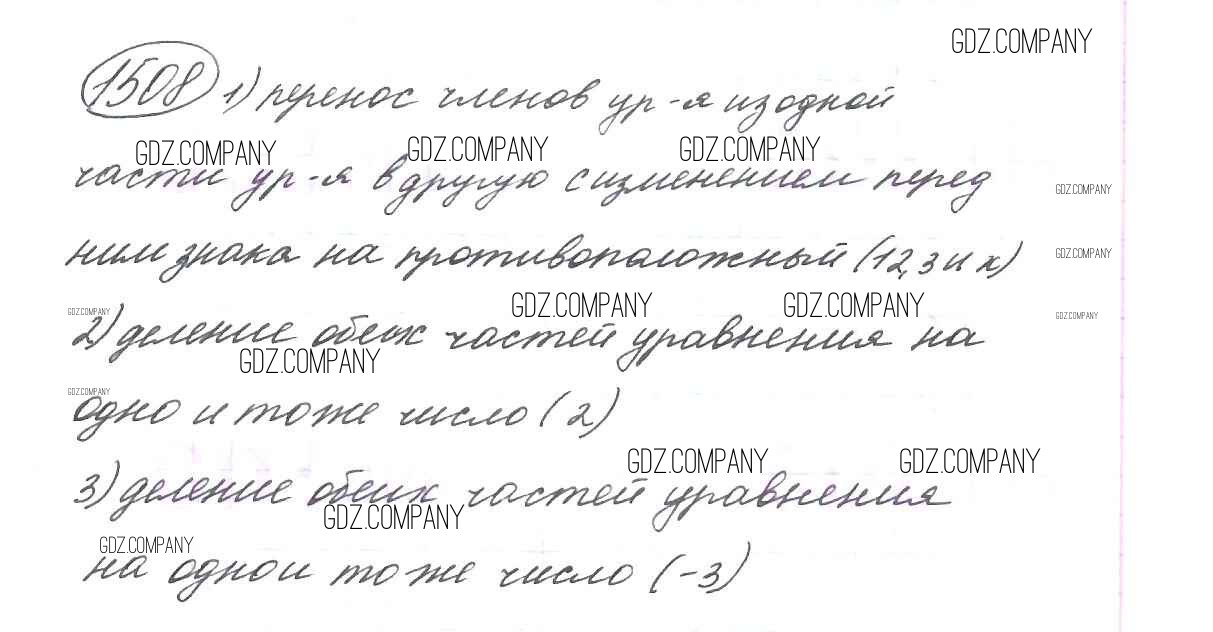 GDZ.COMPANY
1508 1) перенос членов ур-я из одной
GDZ.COMPANY GDZ.COMPANY GDZ.COMPANY
части ур-я в другую с изменением перед
GDZ.COMPANY
ним знака на противоположный (12, 3 и х)
GDZ.COMPANY
GDZ.COMPANY GDZ.COMPANY
GDZ.COMPANY GDZ.COMPANY
2) деление обеих частей уравнения на
GDZ.COMPANY
GDZ.COMPANY
одно и тоже число (2)
GDZ.COMPANY GDZ.COMPANY
3) деление обеих частей уравнения
GDZ.COMPANY
GDZ.COMPANY
на одно и то же число (-3)